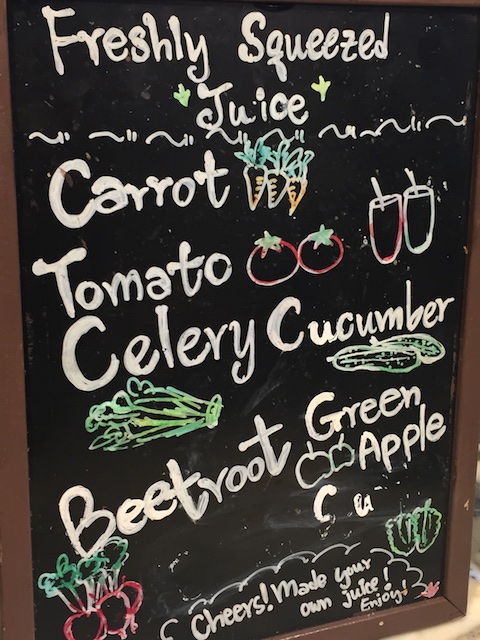 Freshly Squeezed
Juice
Carrot
Tomato
Celery Cucumber
Beetroot Green
Apple
Cheers! Made your
own juice!
Enjoy!